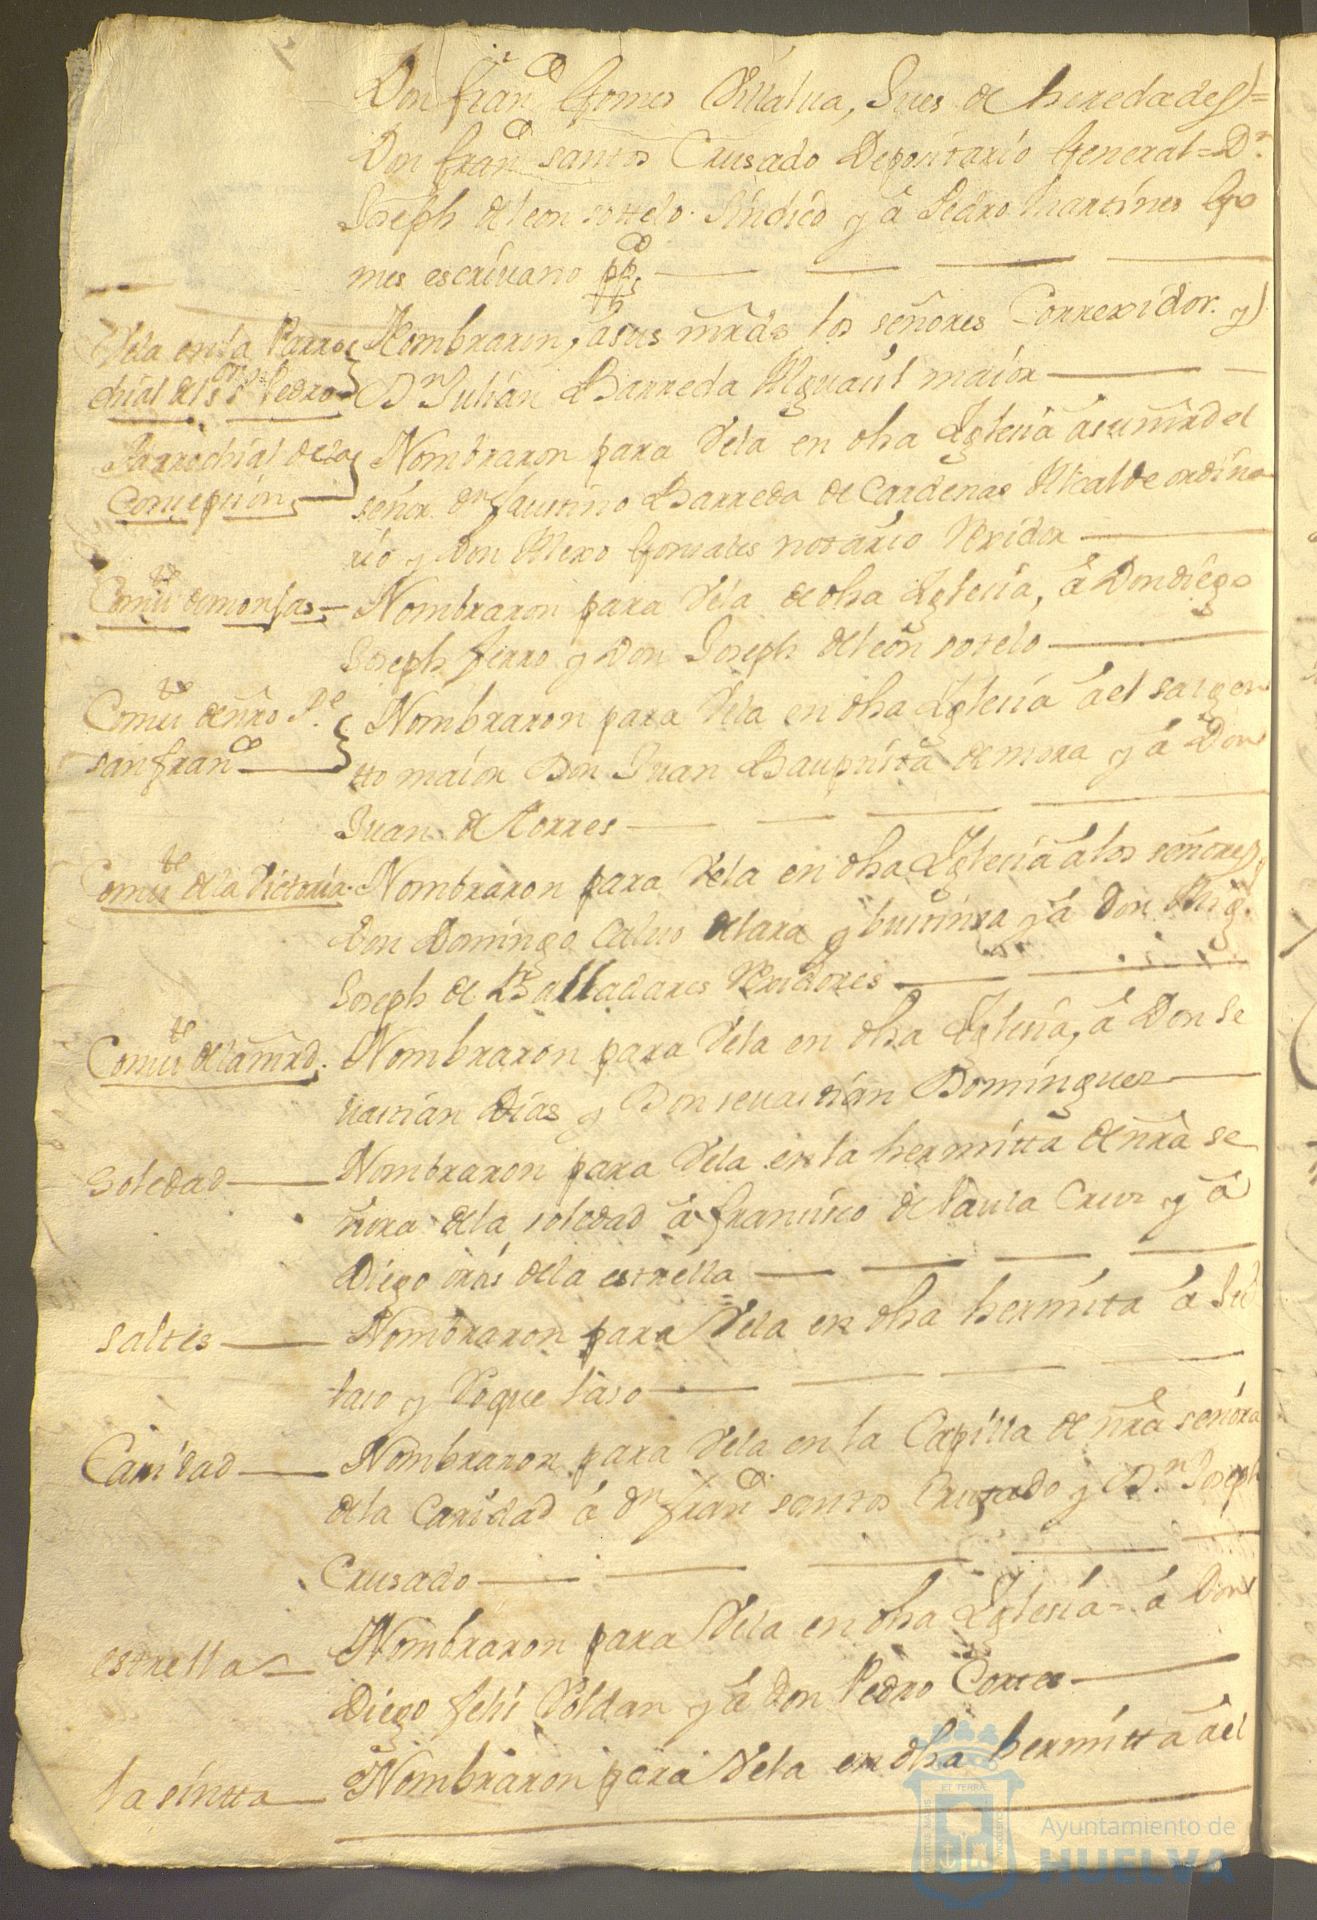 Don Fran.co Gomes Villalua, Jues de heredades =
Don Fran.co santos Crusado Depositario General = D.n
Joseph de leon sottelo Sindico y â Pedro Martines Go
mes escriuano pp.co
Vela en la Parro
chial del s.or s.n Pedro
Nombraron, â sus mrds los señores Correxidor y
D.n Julian Barreda Alguasil maior
Parrochial de la
Consepsion
Nombraron para Vela en dha Iglesia â su mrd el
señor d.n faustino Barreda de Cardenas Alcalde ordina
rio y Don Alexo Gonsales notario Rexidor
Comu.de de monjas
Nombraron para Vela de dha Iglesia, â Don diego
Joseph fierro y Don Joseph de leon sotelo
Comu.de de nro P.e
san fran.co
Nombraron para Vela en dha Iglesia â el sargen
tto maior Don Juan Bauptista de mora y â Don
Juan de Torres
Comu.de de la Victoria
Nombraron para Vela en dha Iglesia â los señores
Don Domingo Caluo de lara y bustinsa y â Don Mig.l
Joseph de Balladares Rexidores
Comu.de de la mrd.
Nombraron para Vela en dha Iglesia, â Don Se
uastian Dias y Don seuastian Dominguez
Soledad
Nombraron para Vela en la hermitta de nrâ se
ñora de la soledad â fransisco de Paula Cruz y â
Diego de la estrella
Saltes
Nombraron para Vela en dha hermita â
laso y Roque laso
Caridad
Nombraron para Vela en la Capilla de nrâ señora
de la Caridad â d.n fran.co santos Crusado y D.n Joseph
Crusado
estrella
Nombraron para Vela en dha Iglesia = â Don
Diego felis Roldan y â don Pedro Correa
la sintta
Nombraron para Vela en dha hermitta â el
ET TERRE
Ayuntamiento de
HUELVA